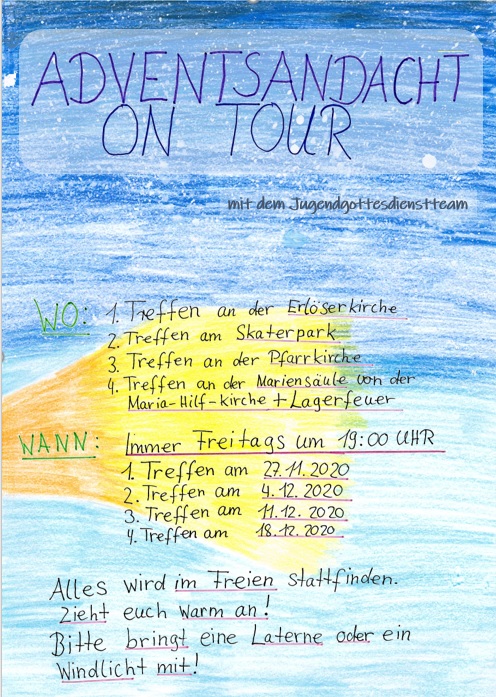 ADVENTSANDACHT
ON TOUR
mit dem Jugendgottesdienstteam
WO: 1. Treffen an der Erlöserkirche
2. Treffen am Skaterpark
3. Treffen an der Pfarrkirche
4. Treffen an der Mariensäule von der
Maria-Hilf-kirche + Lagerfeuer
WANN: Immer Freitags um 19:00 UHR
1. Treffen am 27.11.2020
2. Treffen am 4.12.2020
3. Treffen am 11.12.2020
4. Treffen am 18.12.2020
Alles wird im Freien stattfinden.
Zieht euch warm an!
Bitte bringt eine Laterne oder ein
Windlicht mit!